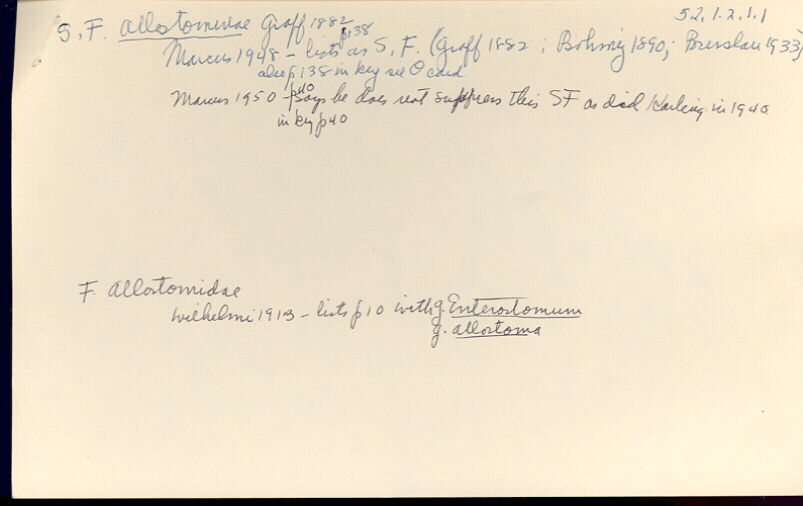 52.1.2.1.1
S.F. Allostominae Graff 1882
p.138
Marcus 1948 - lists as S.F. (Graff 1882; Böhmig 1890; Bresslau 1933)
also p138 in key see O card
p40
Marcus 1950 - says he does not suppress this SF as did Karling in 1940
in key p40
F. Allostomidae
Wilhelmi 1913 - lists p10 with g. Enterostomum
g. Allostoma